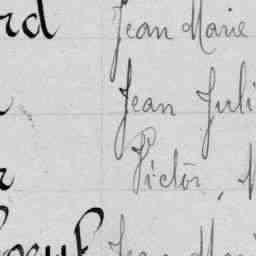 rd Jean Marie
Jean Juli
r Victor, M
boeuf Jean Mari